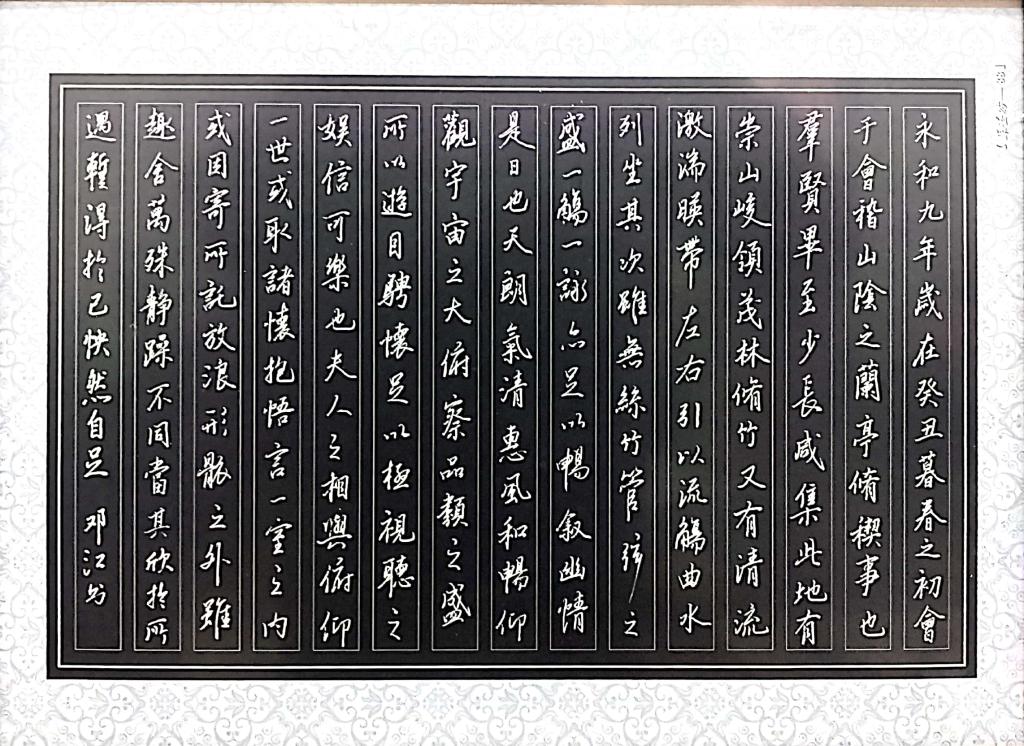 永和九年歲在癸丑暮春之初會
于會稽山陰之蘭亭脩稧事也
羣賢畢至少長咸集此地有
崇山峻領茂林脩竹又有清流
激湍暎帶左右引以流觴曲水
列坐其次雖無絲竹管弦之
盛一觴一詠亦足以暢叙幽情
是日也天朗氣清惠風和暢仰
觀宇宙之大俯察品類之盛
所以遊目騁懷足以極視聽之
娱信可樂也夫人之相與俯仰
一世或取諸懷抱悟言一室之内
或因寄所託放浪形骸之外雖
趣舍萬殊静躁不同當其欣於所
遇蹔得於己怏然自足 邓江书